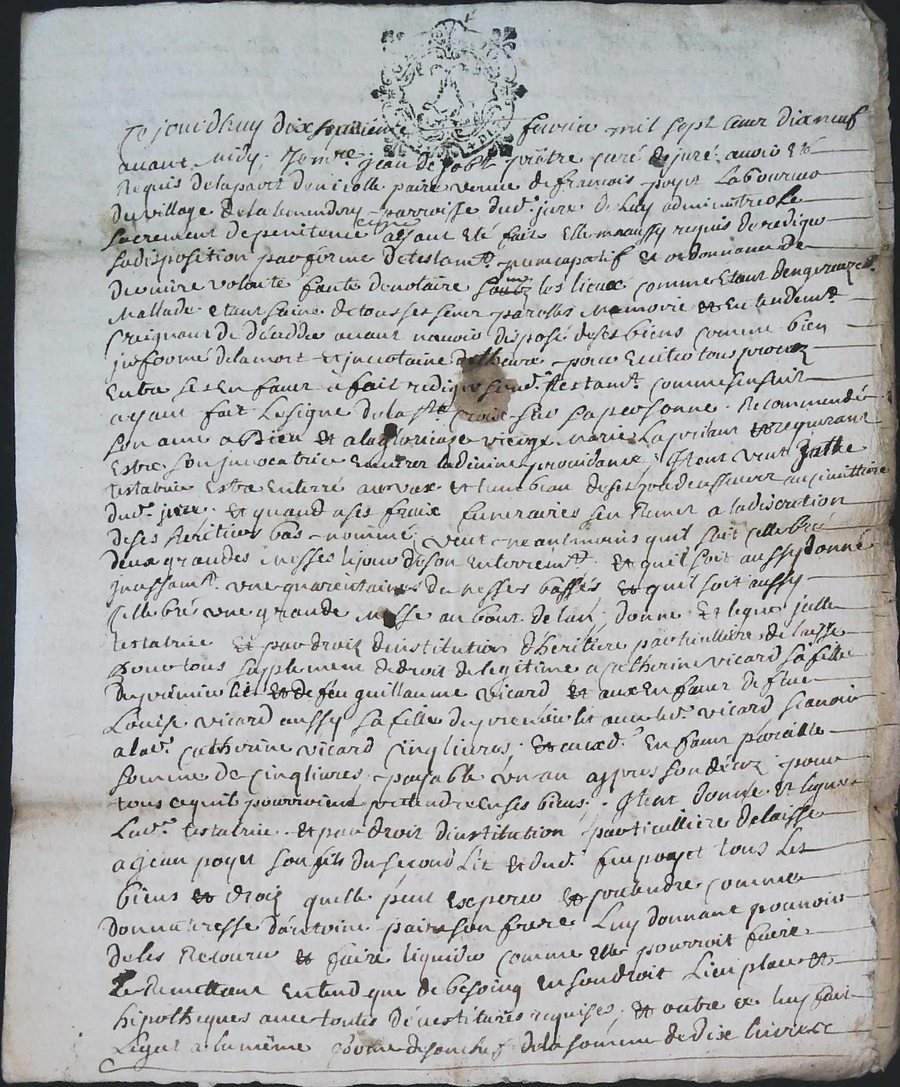 Ce jourdhuy dix septieme fevrier mil sept cens dix neuf
avant midy, jean prêtre curé de juré avoir eté
Requis de la part de nicolle paire veuve de francois poyet Laboureur
Du village de la parroisse dud. jure de Luy administrer Le
Sacrement de penitence ayant eté fait Elle ma aussy requis de rediger
Sa disposition par forme de testamt. nuncupatif et ordonnance de
Derniere volonté faute de notaire sur les lieux comme Etant dangereuzemt.
Mallade etant saine de tous ses sens parolles Memoire et Entendemt.
Craignant de déceder avant navoir disposé de ses biens comme bien
informé de la mort et incertaine de l'heure pour Eviter tous procez
Entre ses Enfans a fait rediger sond. testamt. comme sensuit
ayant fait Le signe de la ste. Croix sur sa personne Recommendé
Son ame a Dieu et a la glorieuse vierge marie La priant et requerant
Estre son invocatrice Envers la divine providance; Item veut ladte
testatrice Estre Enterré au vax et tumbeau de ses predecesseurs au cimittiere
dud. jure et quand a ses fraix funeraires sen Remet a la discretion
de ses heritiers bas nommé veut neantmoins quil soit cellebré
deux grandes messes le jour de son enterremt. Et quil soit aussy donné
Incessamt. une quarentaine de messes basses et quil soit aussy
cellebré une grande Messe au bout de lan; donne et legue jcelle
testatrice Et par droit dinstitution dheritiere particulliere delaisse
Pour tous suplement de droit de legitime a catherine vicard sa fille
du premier lit et de feu guillaume vicard et aux Enfans de feue
Louise vicard aussy sa fille du premier lit avec led. vicard scavoir
a lad. Catherine vicard cinq livres et auxd. Enfans pareille
somme de cinq livres payable un an apres son décez pour
tous ce quil pourroient pretendre en ses biens; Item donne et legue
Lad. testatrice et par droit dinstitution particulliere delaisse
a jean poyet son fils du second Lit et dud. feu poyet tous Les
biens et droiz quelle peut Esperer et pretendre comme
donnatresse dantoine paire son frere Luy donnant pouvoir
de les Retirer et faire liquider comme Elle pourroit faire
Le Remettant Entend que de besoing En son droit Lieu place et
hipotheques avec toutes Les requises; et outre ce luy fait
Legat a lu même de la somme de dix livres